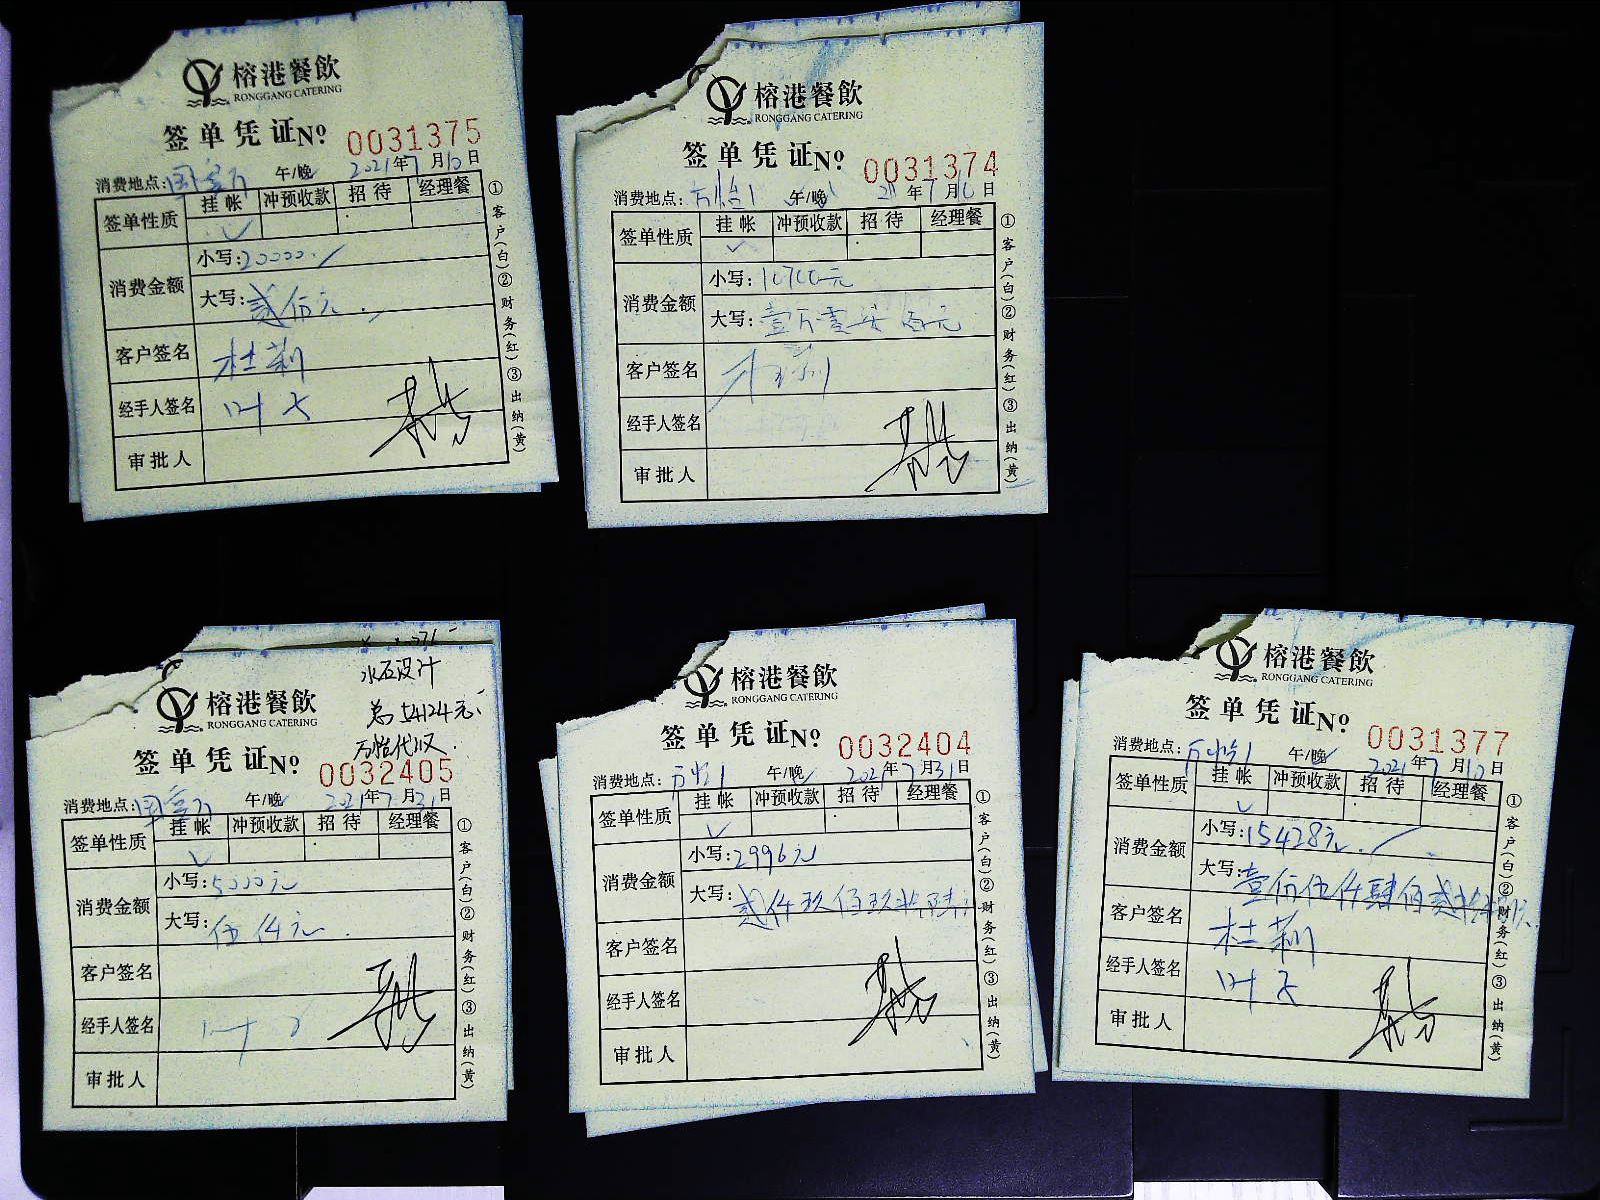 榕港餐飲
RONGGANG CATERING
签单凭证Nº 0031375
消费地点: 午/晚 2021年7月10日
签单性质 挂帐 冲预收款 招待 经理餐
✓
消费金额 小写:20000.
大写:贰万元.
客户签名 杜莉
经手人签名 叶
审批人
①客户(白)②财务(红)③出纳(黄)
榕港餐飲
RONGGANG CATERING
签单凭证Nº 0031374
消费地点:万怡1 午/晚 年7月 日
签单性质 挂帐 冲预收款 招待 经理餐
✓
消费金额 小写:10700元
大写:壹万零柒佰元
客户签名
经手人签名
审批人
①客户(白)②财务(红)③出纳(黄)
水石设计
总54124元
万怡代收.
榕港餐飲
RONGGANG CATERING
签单凭证Nº 0032405
消费地点: 午/晚 2021年7月31日
签单性质 挂帐 冲预收款 招待 经理餐
✓
消费金额 小写:5000元
大写:伍仟元.
客户签名
经手人签名 叶
审批人
①客户(白)②财务(红)③出纳(黄)
榕港餐飲
RONGGANG CATERING
签单凭证Nº 0032404
消费地点:万怡1 午/晚 2021年7月31日
签单性质 挂帐 冲预收款 招待 经理餐
✓
消费金额 小写:2996元
大写:贰仟玖佰玖拾陆元
客户签名
经手人签名
审批人
①客户(白)②财务(红)③出纳(黄)
榕港餐飲
RONGGANG CATERING
签单凭证Nº 0031377
消费地点:万怡1 午/晚 2021年7月10日
签单性质 挂帐 冲预收款 招待 经理餐
✓
消费金额 小写:15428元.
大写:壹万伍仟肆佰贰拾捌元
客户签名 杜莉
经手人签名 叶
审批人
①客户(白)②财务(红)③出纳(黄)